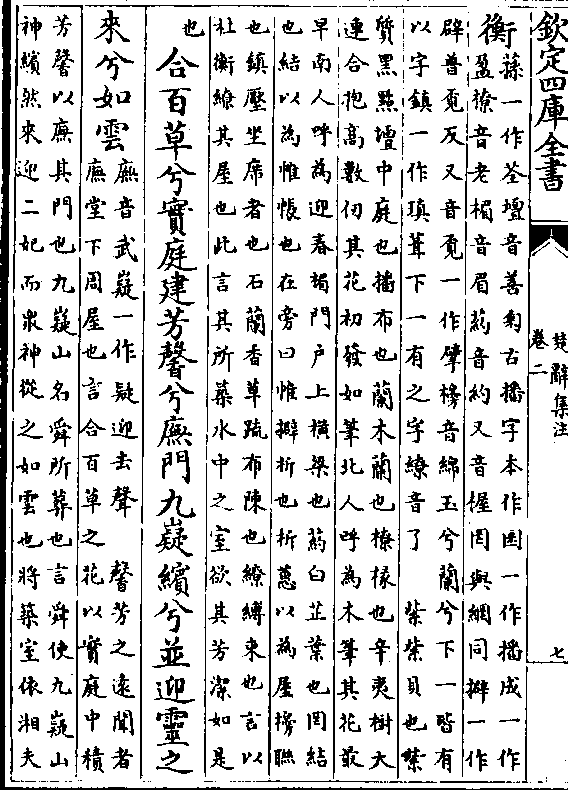 欽定四庫全書
楚辭集注
卷二
七
衡
蓀一作荃壇音善匊古播字本作囷一作播成一作
盈橑音老楣音眉葯音約又音握罔與網同擗一作
辟普覔反又音覔一作擘櫋音綿玉兮蘭兮下一皆有
以字鎮一作瑱葺下一有之字繚音了　紫紫貝也紫
質黑點壇中庭也播布也蘭木蘭也橑椽也辛夷樹大
連合抱高數仞其花初發如筆北人呼為木筆其花最
早南人呼為迎春楣門戶上橫梁也葯白芷葉也罔結
也結以為帷帳也在旁曰帷擗析也析蕙以為屋櫋聯
也鎮壓坐席者也石蘭香草疏布陳也繚縛束也言以
杜衡繚其屋也此言其所築水中之室欲其芳潔如是
也
合百草兮實庭建芳馨兮廡門九嶷繽兮並迎靈之
來兮如雲
廡音武嶷一作疑迎去聲　馨芳之遠聞者
廡堂下周屋也言合百草之花以實庭中積
芳馨以廡其門也九嶷山名舜所葬也言舜使九嶷山
神繽然來迎二妃而衆神從之如雲也將築室依湘夫